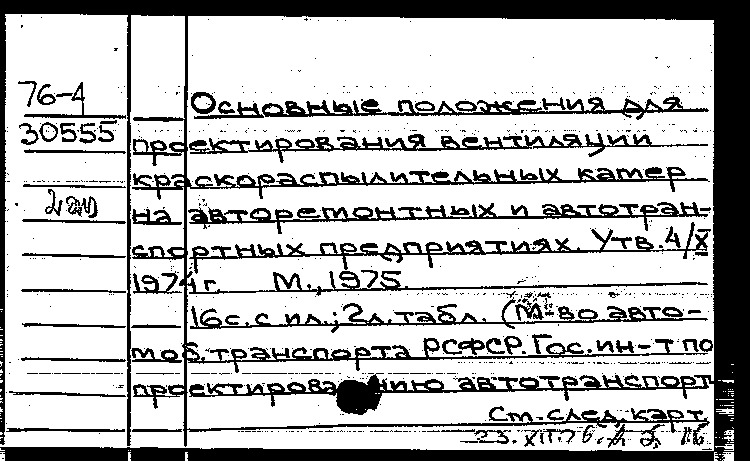 76-4
30555
Основные положения для
проектирования вентиляции
краскораспылительных камер
на авторемонтных и автотран-
спортных предприятиях. Утв. 4/X
1974 г. М., 1975.
16 с. с ил.; 2 л. табл. (М-во авто-
моб. транспорта РСФСР. Гос. ин-т по
проектированию автотранспорт
Ст. след. карт.
23.XII.76.